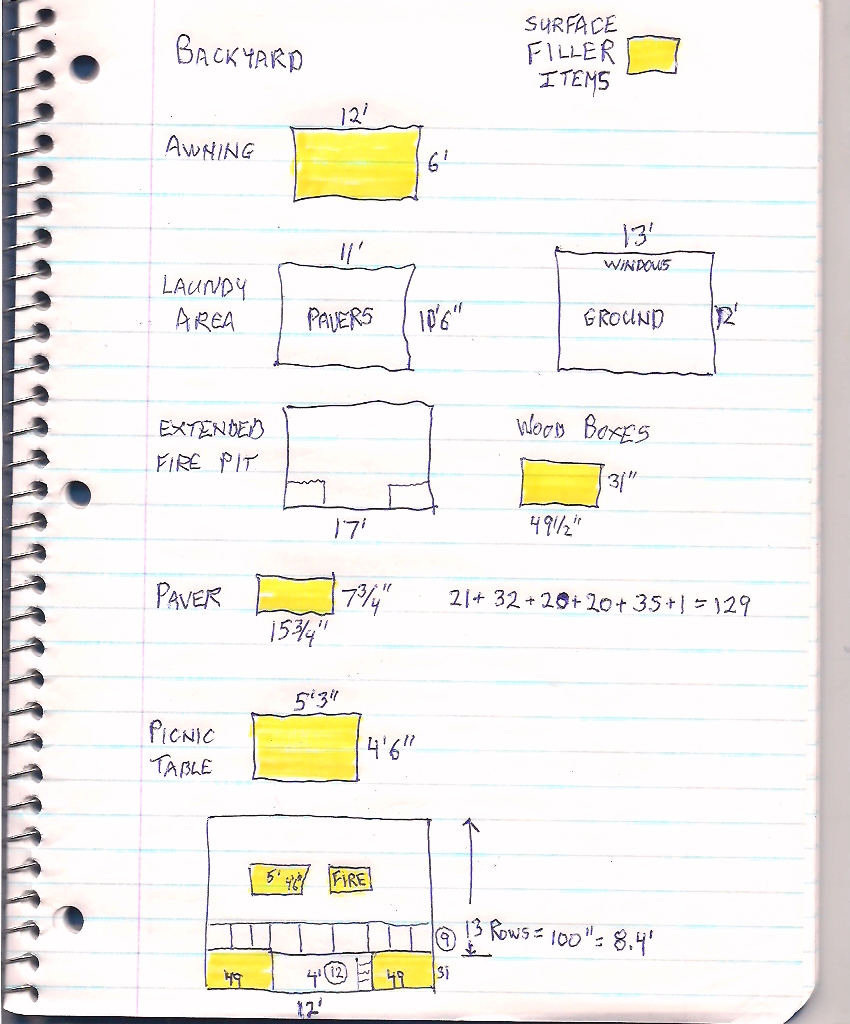 BACKYARD
SURFACE
FILLER
ITEMS
12'
AWNING
6'
11'
13'
WINDOWS
LAUNDY
AREA
PAVERS
10'6"
GROUND
12'
EXTENDED
FIRE PIT
17'
WOOD BOXES
31"
49 1/2"
PAVER
7 3/4"
15 3/4"
21+ 32 + 20+ 20 + 35 + 1 = 129
5'3"
PICNIC
TABLE
4'6"
5' 4'6"
FIRE
9
13 ROWS = 100" = 8.4'
49
4'
12
49
31
12'